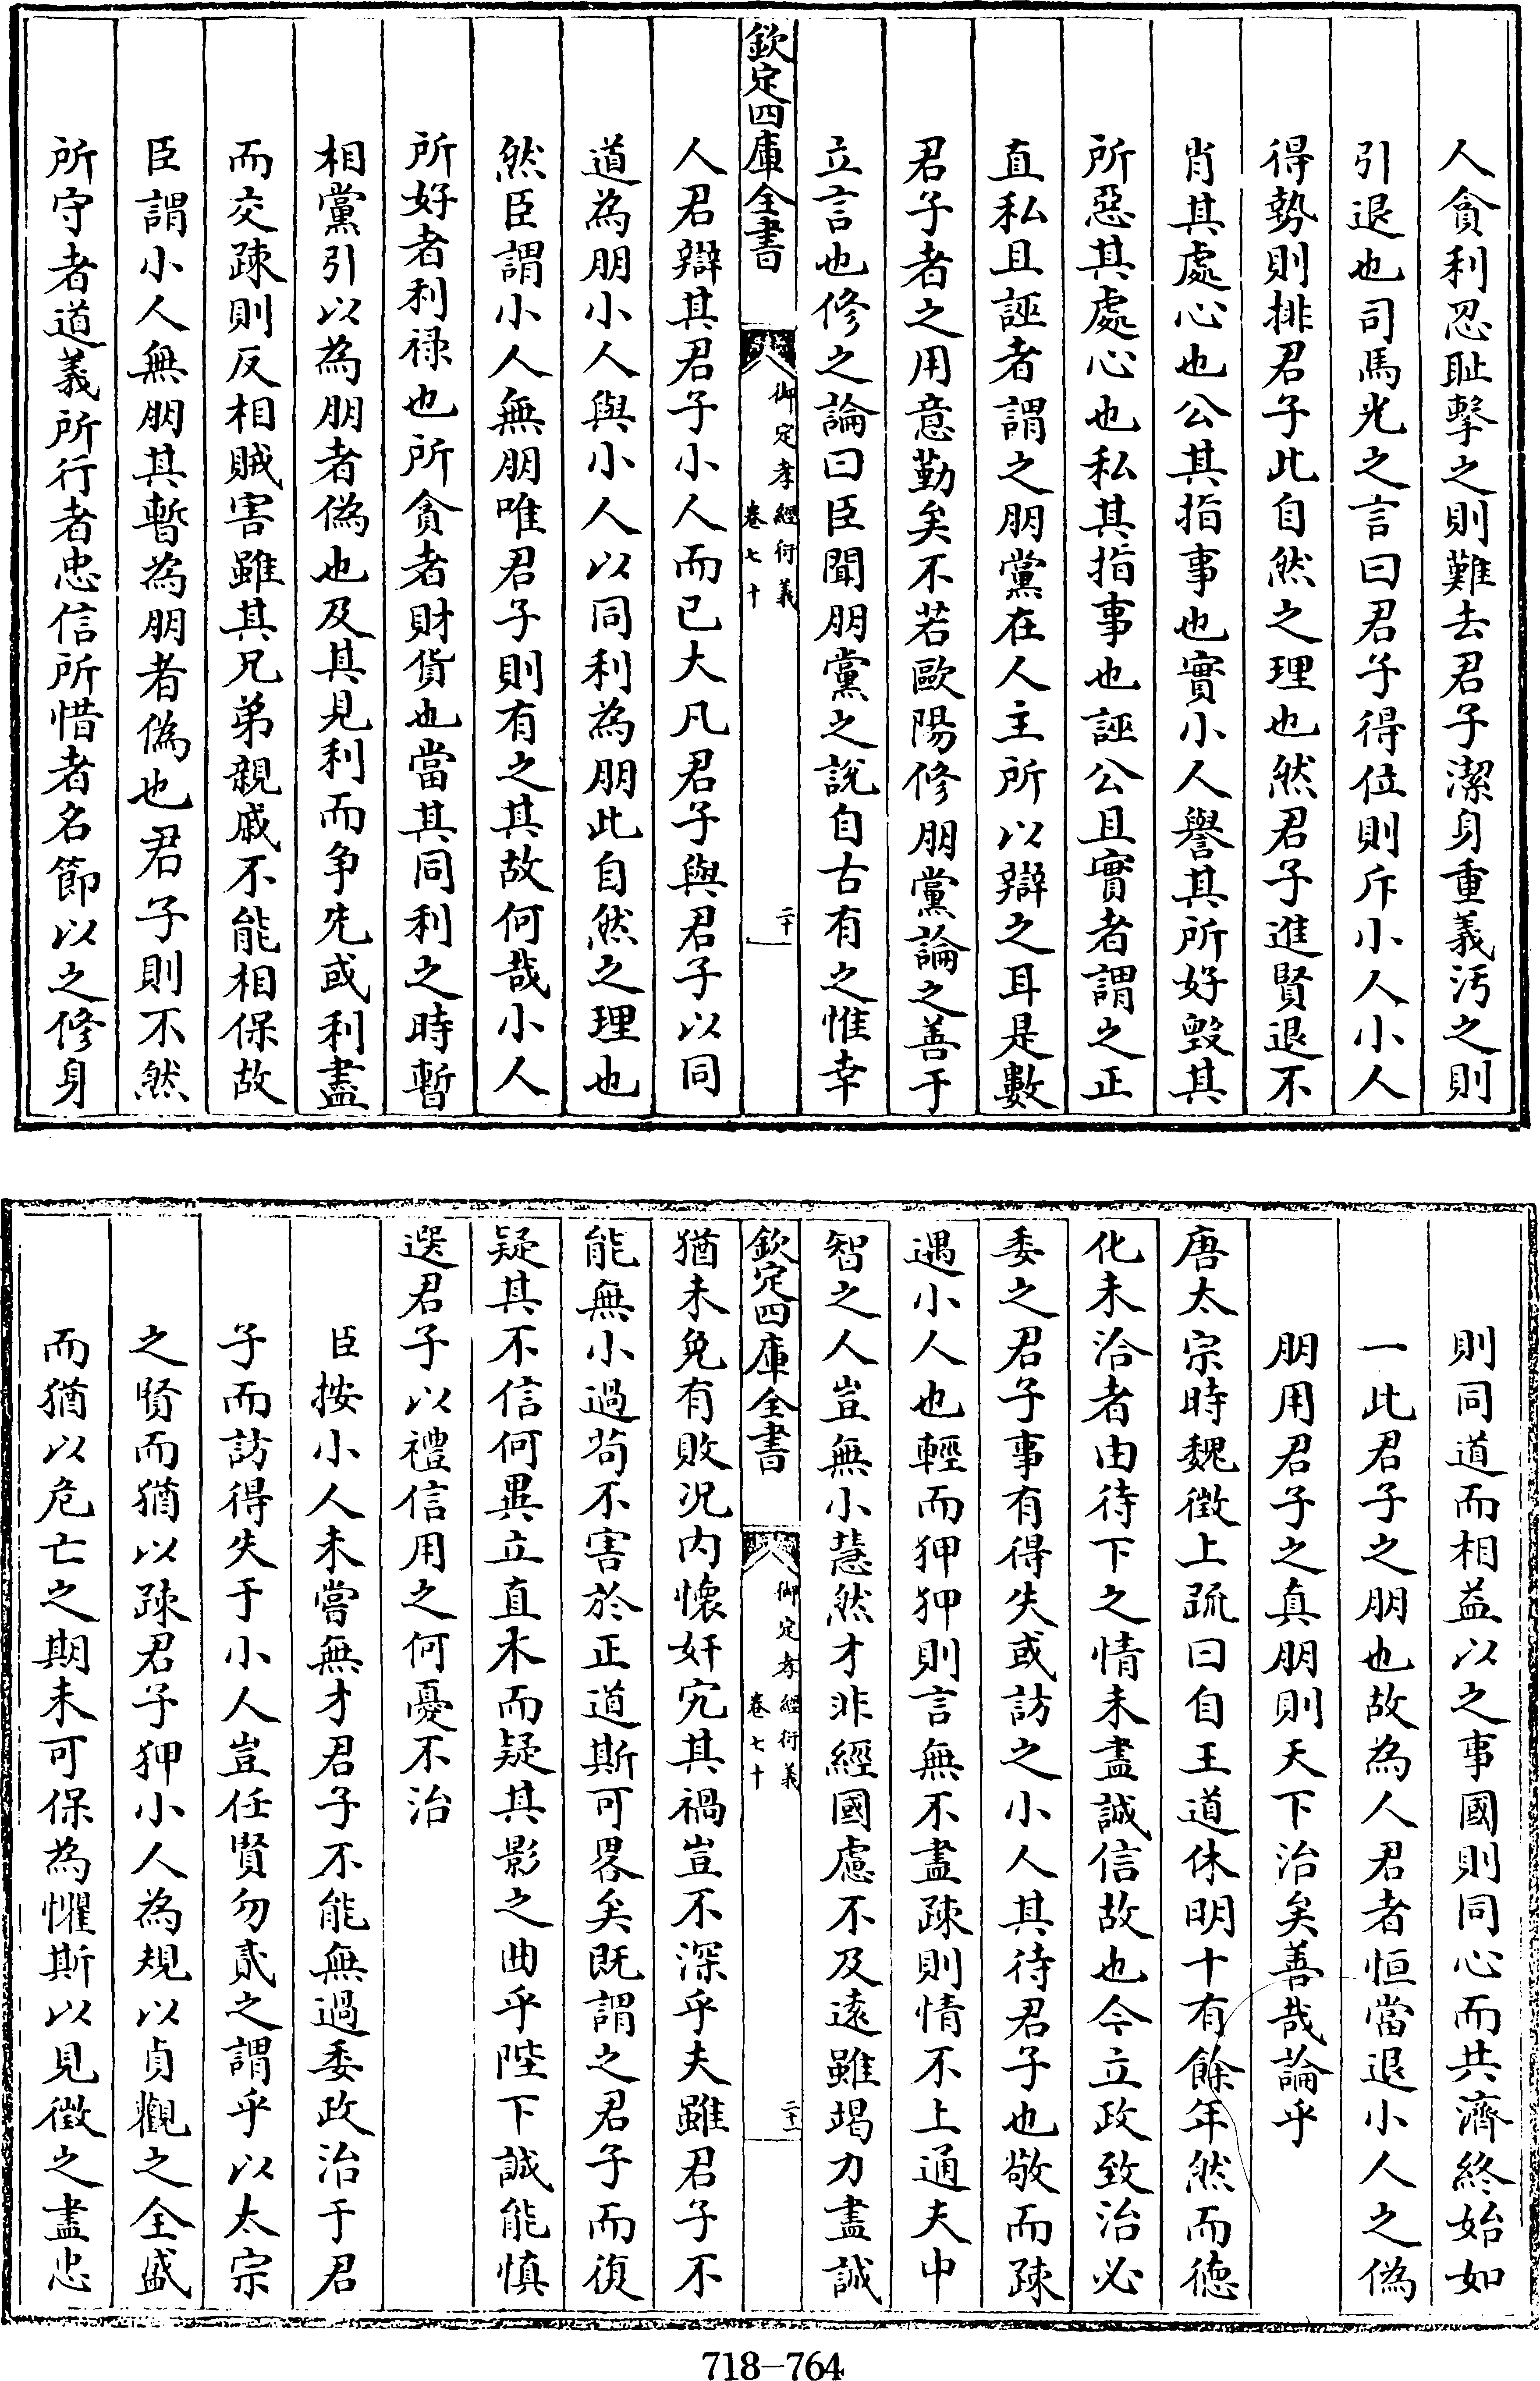 人貪利忍耻擊之則難去君子潔身重義汚之則
引退也司馬光之言曰君子得位則斥小人小人
得勢則排君子此自然之理也然君子進賢退不
肖其處心也公其指事也實小人譽其所好毀其
所惡其處心也私其指事也誣公且實者謂之正
直私且誣者謂之朋黨在人主所以辯之耳是數
君子者之用意勤矣不若歐陽修朋黨論之善于
立言也修之論曰臣聞朋黨之說自古有之惟幸
欽定四庫全書
御定孝經衍義
卷七十
二十
人君辯其君子小人而已大凡君子與君子以同
道為朋小人與小人以同利為朋此自然之理也
然臣謂小人無朋唯君子則有之其故何哉小人
所好者利祿也所貪者財貨也當其同利之時暫
相黨引以為朋者偽也及其見利而争先或利盡
而交疎則反相賊害雖其兄弟親戚不能相保故
臣謂小人無朋其暫為朋者偽也君子則不然
所守者道義所行者忠信所惜者名節以之修身
則同道而相益以之事國則同心而共濟終始如
一此君子之朋也故為人君者恒當退小人之偽
朋用君子之真朋則天下治矣善哉論乎
唐太宗時魏徵上疏曰自王道休明十有餘年然而德
化未洽者由待下之情未盡誠信故也今立政致治必
委之君子事有得失或訪之小人其待君子也敬而疎
遇小人也輕而狎狎則言無不盡疎則情不上通夫中
智之人豈無小慧然才非經國慮不及遠雖竭力盡誠
欽定四庫全書
御定孝經衍義
卷七十
二十一
猶未免有敗况内懷奸宄其禍豈不深乎夫雖君子不
能無小過苟不害於正道斯可畧矣既謂之君子而復
疑其不信何異立直木而疑其影之曲乎陛下誠能慎
選君子以禮信用之何憂不治
臣按小人未嘗無才君子不能無過委政治于君
子而訪得失于小人豈任賢勿貳之謂乎以太宗
之賢而猶以疎君子狎小人為規以貞觀之全盛
而猶以危亡之期未可保為懼斯以見徵之盡忠
718-764